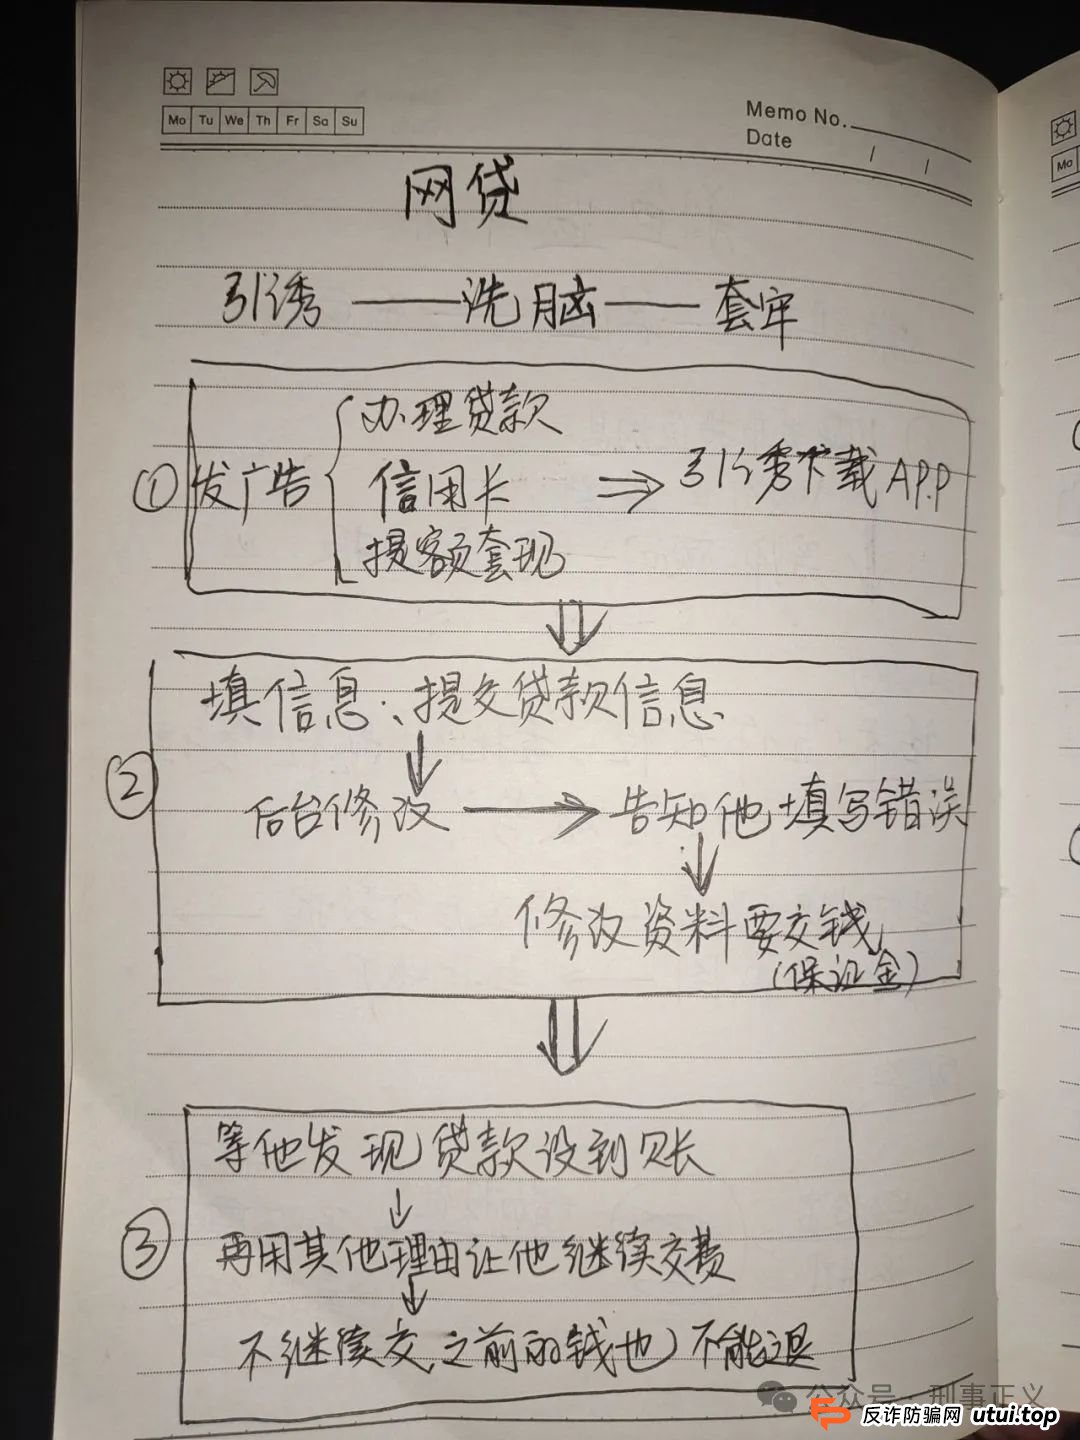 Mo Tu We Th Fr Sa Su
Memo No.
Date / /
Mo
网贷
引诱 —— 洗脑 —— 套牢
① 发广告
办理贷款
信用卡
提额套现
⇒ 引诱下载 APP
② 填信息、提交贷款信息
后台修改 → 告知他填写错误
修改资料要交钱
(保证金)
③ 等他发现贷款没到账
再用其他理由让他继续交费
不继续交,之前的钱也不能退
公众号·刑事正义
反诈防骗网 utui.top